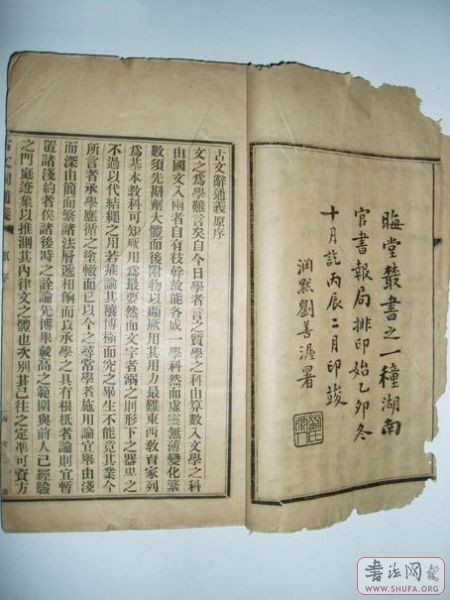 晦堂叢書之一種湖南
官書報局排印始乙卯冬
十月訖丙辰二月印竣
劉善渥署
古文辭通義原序
文之爲學難言矣自今日學者言之質學之科由算數入文學之科
由國文入兩者自有枝幹故能各成一學科然而虛靈無薄變化繁
數須先斟劑大體而後附物以驅厥用其用力最難東西教育家列
爲基本教科可知厥用爲最要然而文字者溺之則形下之器卑之
不過以代結繩之用若論其博極而究之畢生不能竟其業今
所言者承學應循之塗轍而已以今之尋常學者施用論宜舉由淺
而深由簡而繁諸法層遞相餉而以承學之具有根柢者論則宜暫
置諸淺約者俟諸後時之詮論先博舉較高之範圍與前人已經驗
之門庭迹象以推測其内律文之體也次別其已往之定準可資方
古文辭通義 原序
書法网
WWW.SHUFA.ORG